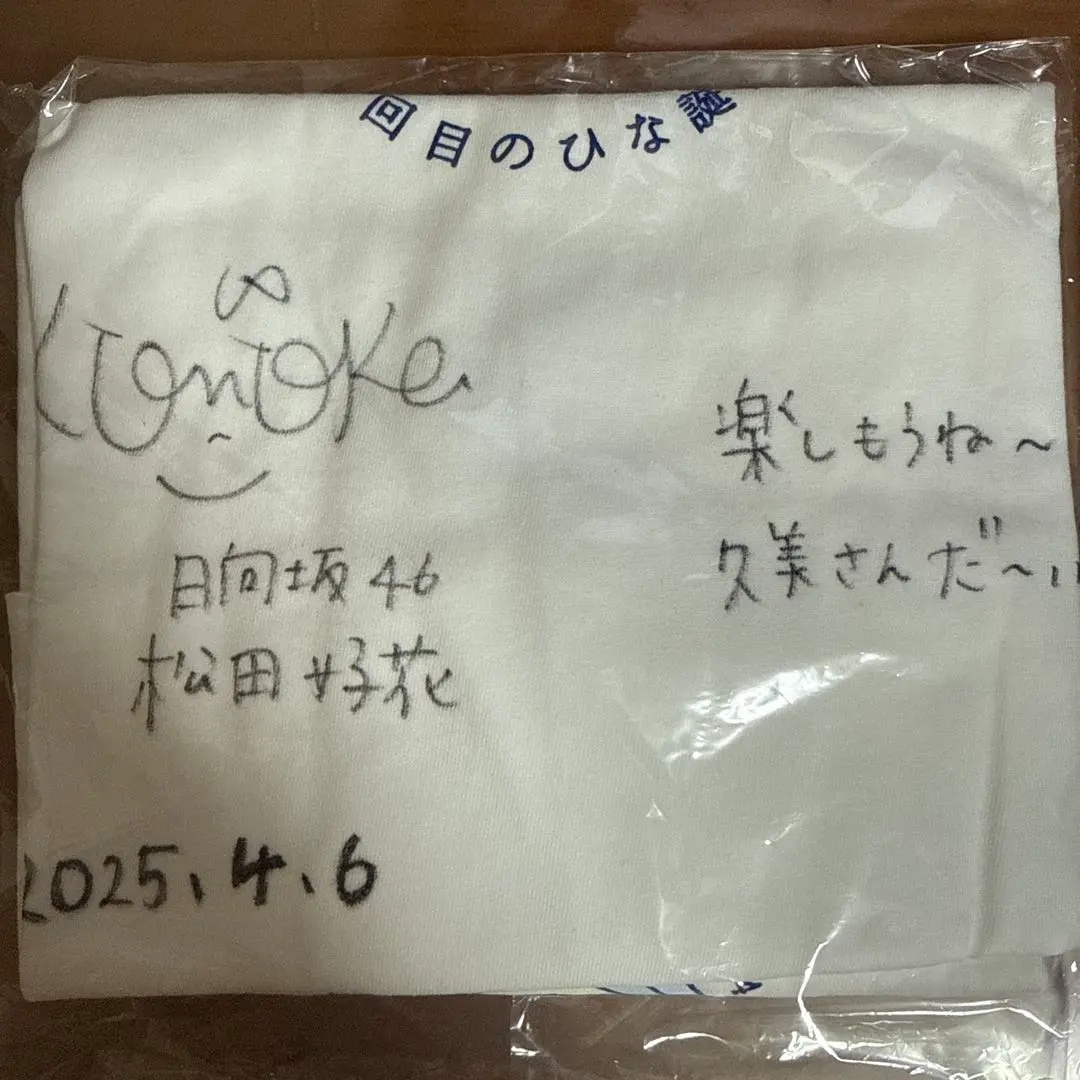 回目のひな誕
Konoka
日向坂46
松田好花
2025.4.6
楽しもうね〜
久美さんだ〜!!